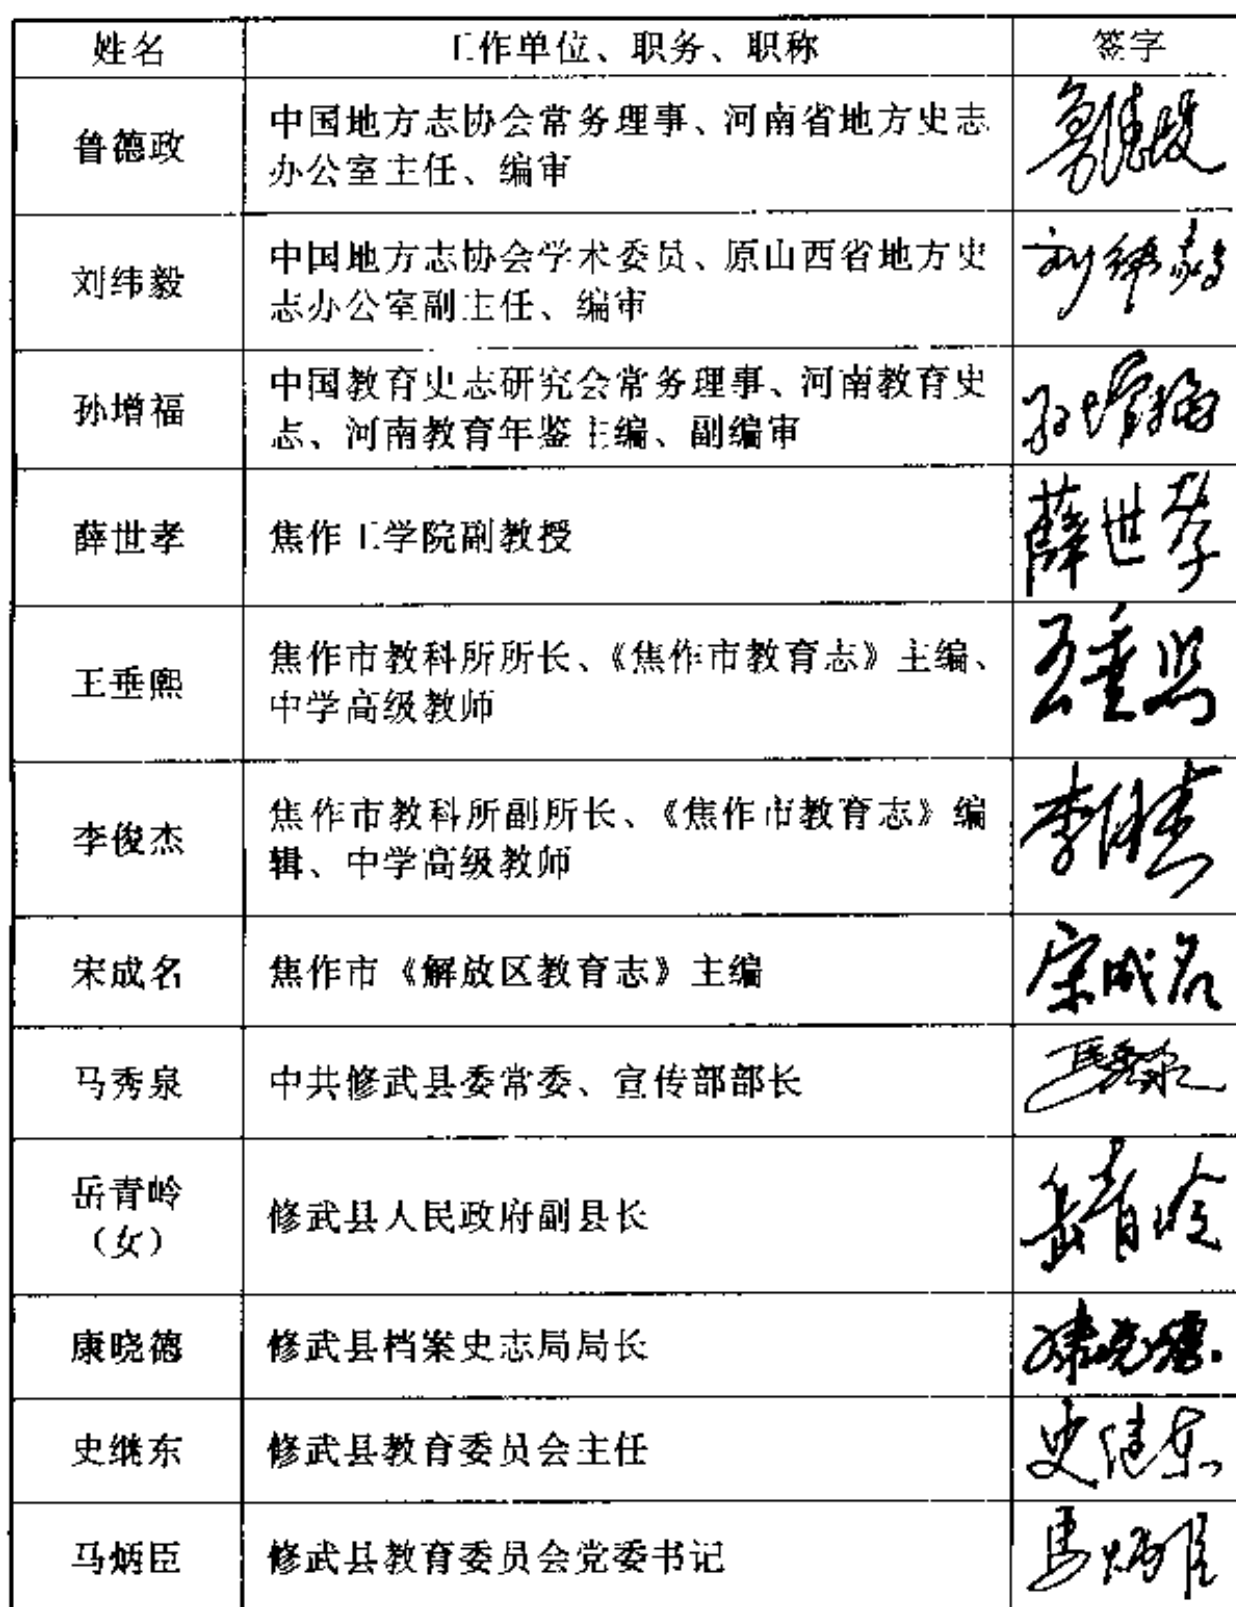 姓名 工作单位、职务、职称 签字
鲁德政 中国地方志协会常务理事、河南省地方史志 鲁德政
办公室主任、编审
刘纬毅 中国地方志协会学术委员、原山西省地方史 刘纬毅
志办公室副主任、编审
孙增福 中国教育史志研究会常务理事、河南教育史 孙增福
志、河南教育年鉴主编、副编审
薛世孝 焦作工学院副教授 薛世孝
王垂熙 焦作市教科所所长、《焦作市教育志》主编、 王垂熙
中学高级教师
李俊杰 焦作市教科所副所长、《焦作市教育志》编 李俊杰
辑、中学高级教师
宋成名 焦作市《解放区教育志》主编 宋成名
马秀泉 中共修武县委常委、宣传部部长 马秀泉
岳青岭 修武县人民政府副县长 岳青岭
（女）
康晓德 修武县档案史志局局长 康晓德
史继东 修武县教育委员会主任 史继东
马炳臣 修武县教育委员会党委书记 馬炳臣